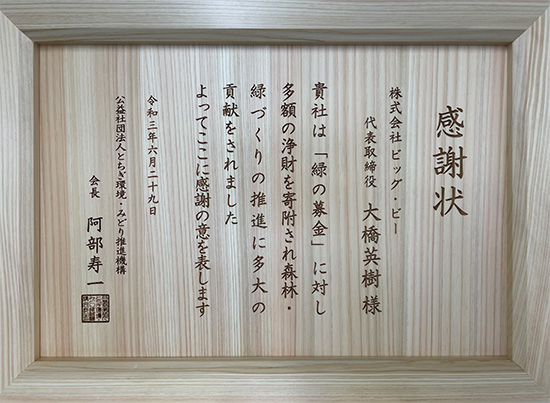 感謝状
株式会社 ビッグ・ビー
代表取締役 大橋英樹様
貴社は「緑の募金」に対し
多額の浄財を寄附され森林・
緑づくりの推進に多大の
貢献をされました
よってここに感謝の意を表します
令和三年六月二十九日
公益社団法人とちぎ環境・みどり推進機構
会長 阿部寿一